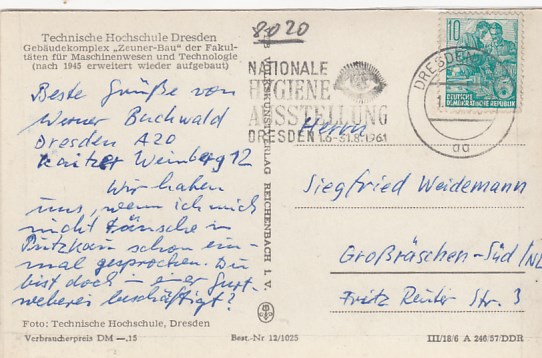 8020
Technische Hochschule Dresden
Gebäudekomplex „Zeuner-Bau" der Fakul-
täten für Maschinenwesen und Technologie
(nach 1945 erweitert wieder aufgebaut)
Beste Grüße von
Werner Buchwald
Dresden A20
Kaitzer Weinberg 12
Wir haben
uns, wenn ich mich
nicht täusche in
schon ein-
mal gesprochen. Du
bist doch in einer Gurt-
weberei beschäftigt?
Foto: Technische Hochschule, Dresden
Verbraucherpreis DM —,15
VEB VOLKSKUNSTVERLAG REICHENBACH I. V.
NATIONALE
HYGIENE
AUSSTELLUNG
DRESDEN 1.6-31.8.1961
DRESDEN
10
DEUTSCHE
DEMOKRATISCHE REPUBLIK
Herrn
Siegfried Weidemann
Großräschen-Süd/NL
Fritz Reuter Str. 3
Best.-Nr 12/1025
III/18/6 A 246/57/DDR